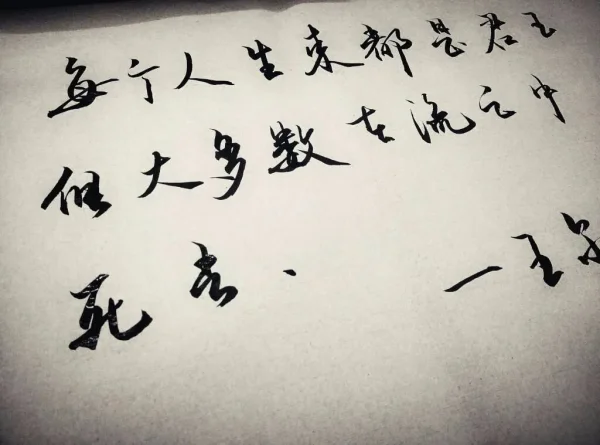 每个人生来都是君王
但大多数在流亡中
死去. —王尔